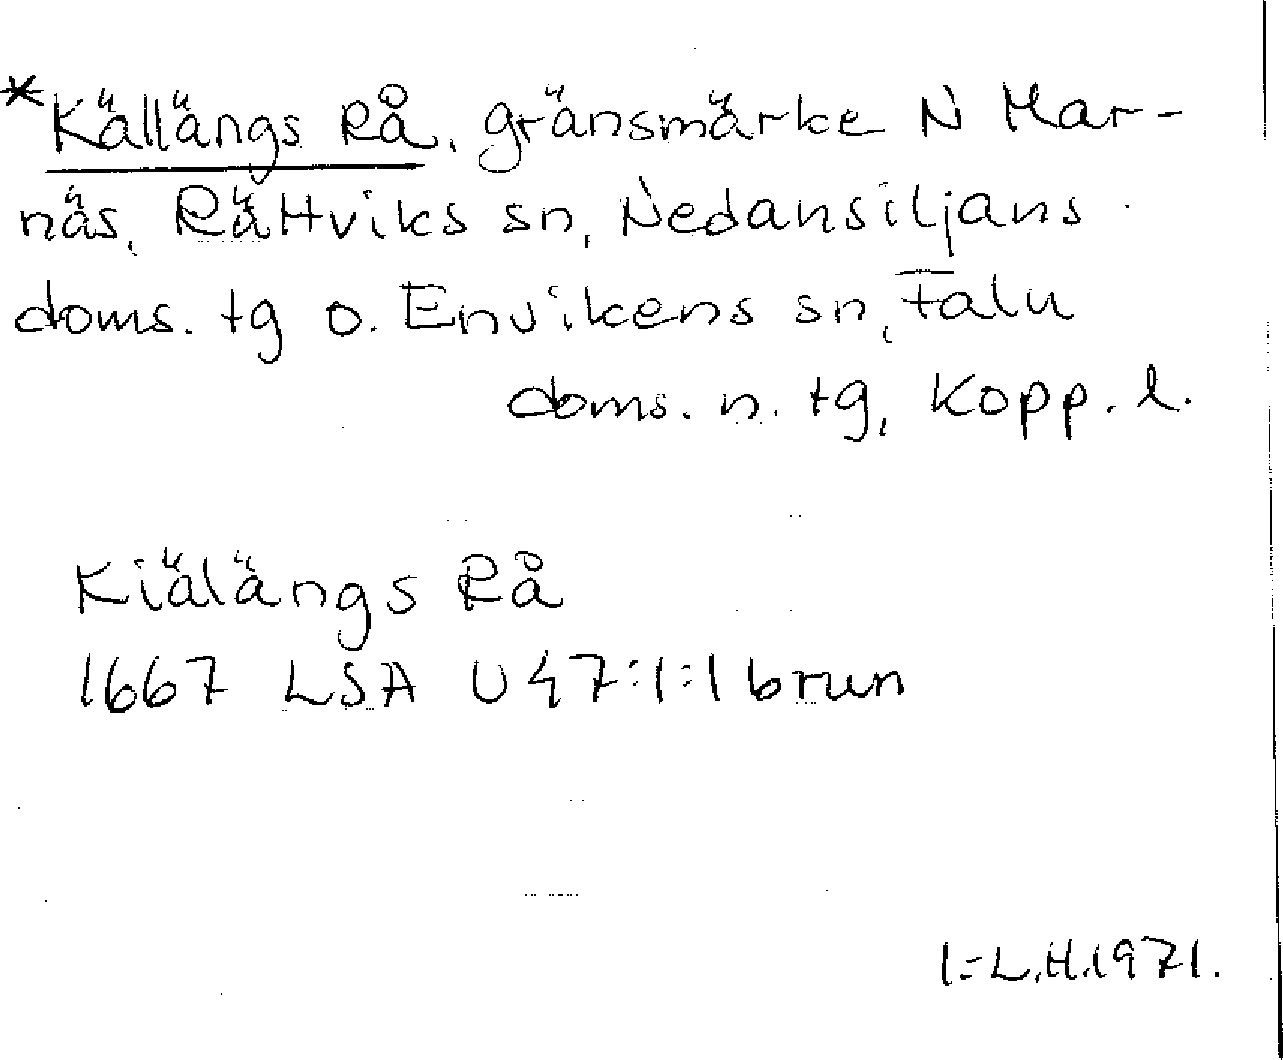 *Källängs Rå, gränsmärke N Mar-
näs, Rättviks sn, Nedansiljans
doms. tg o. Envikens sn, Falu
doms. n. tg, Kopp. l.
Kiälängs Rå
1667 LSA U47:1:1 brun
1=L.H.1971.